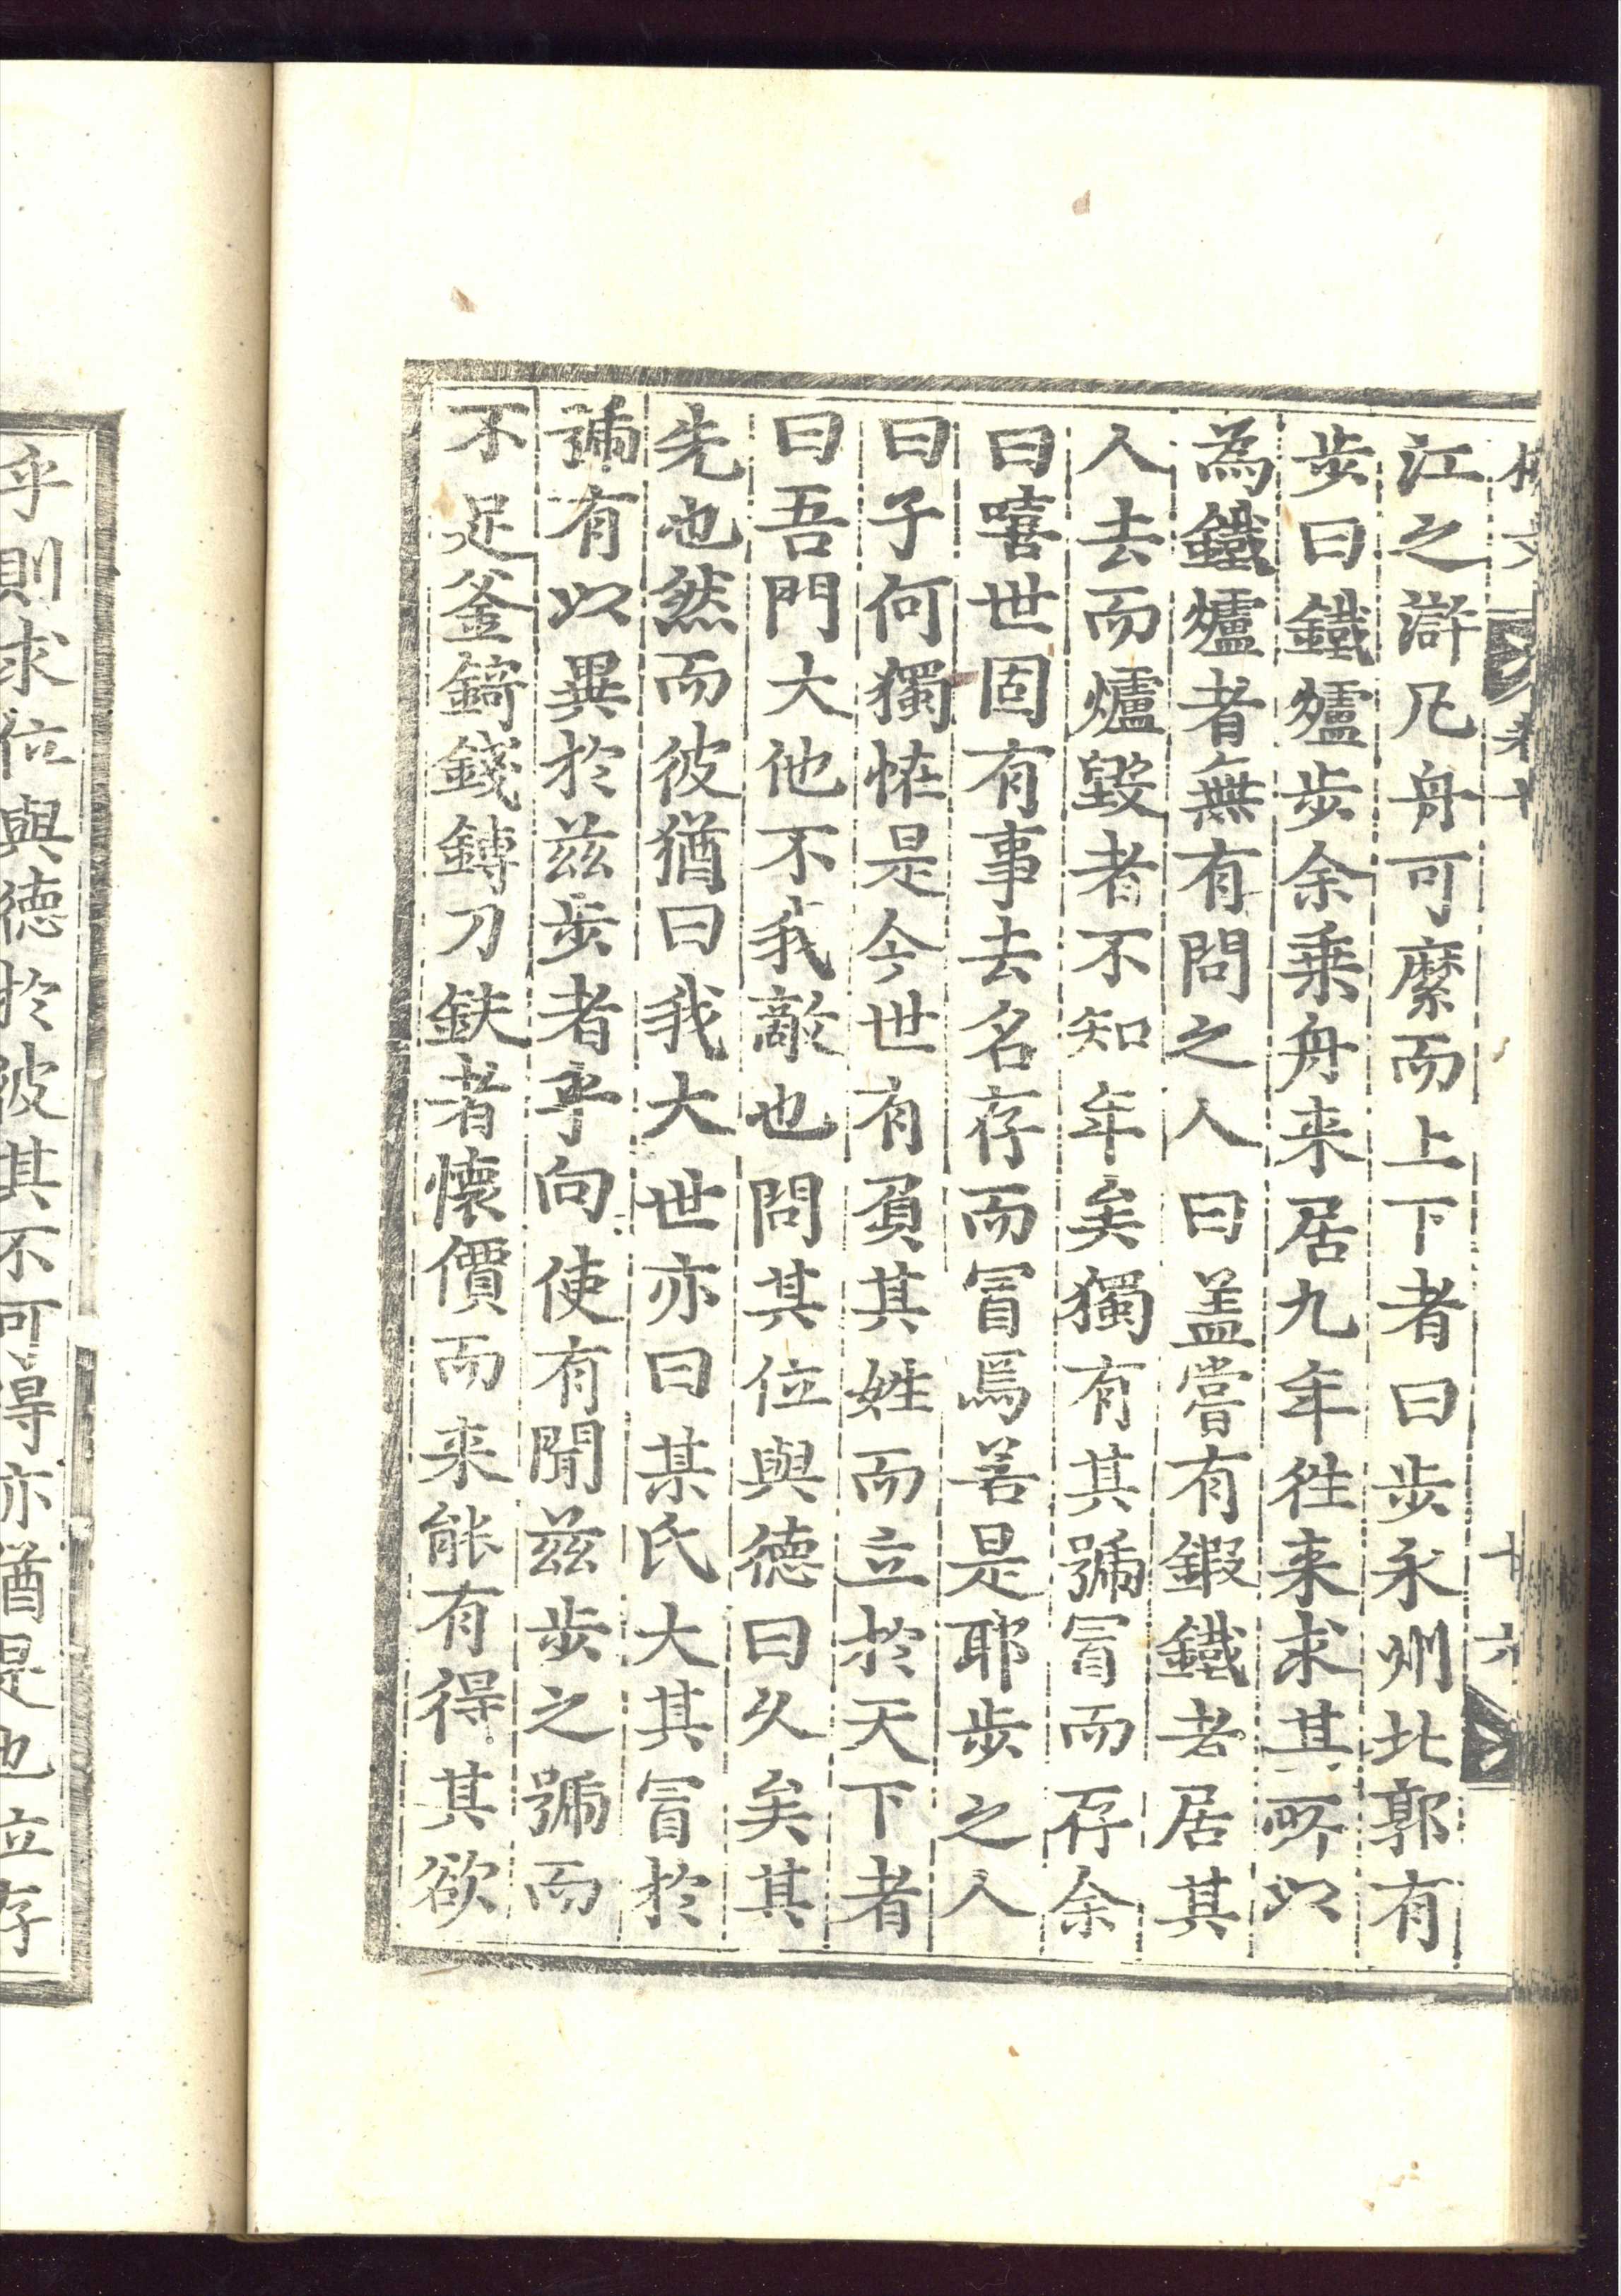 文
卷十
十六
江之滸凡舟可縻而上下者曰步永州北郭有
步曰鐵爐步余乗舟来居九年徃来求其所以
為鐵爐者無有問之人曰盖嘗有鍛鐵者居其
人去而爐毀者不知年矣獨有其號冒而存余
曰嘻世固有事去名存而冒焉若是耶步之人
曰子何獨恠是今世有負其姓而立於天下者
曰吾門大他不我敵也問其位與德曰久矣其
先也然而彼猶曰我大世亦曰某氏大其冒於
號有以異於兹步者乎向使有聞兹步之號而
不足釜錡錢鎛刀鈇者懷價而来能有得其欲
乎則求位與德於彼其不可得亦猶是也位存